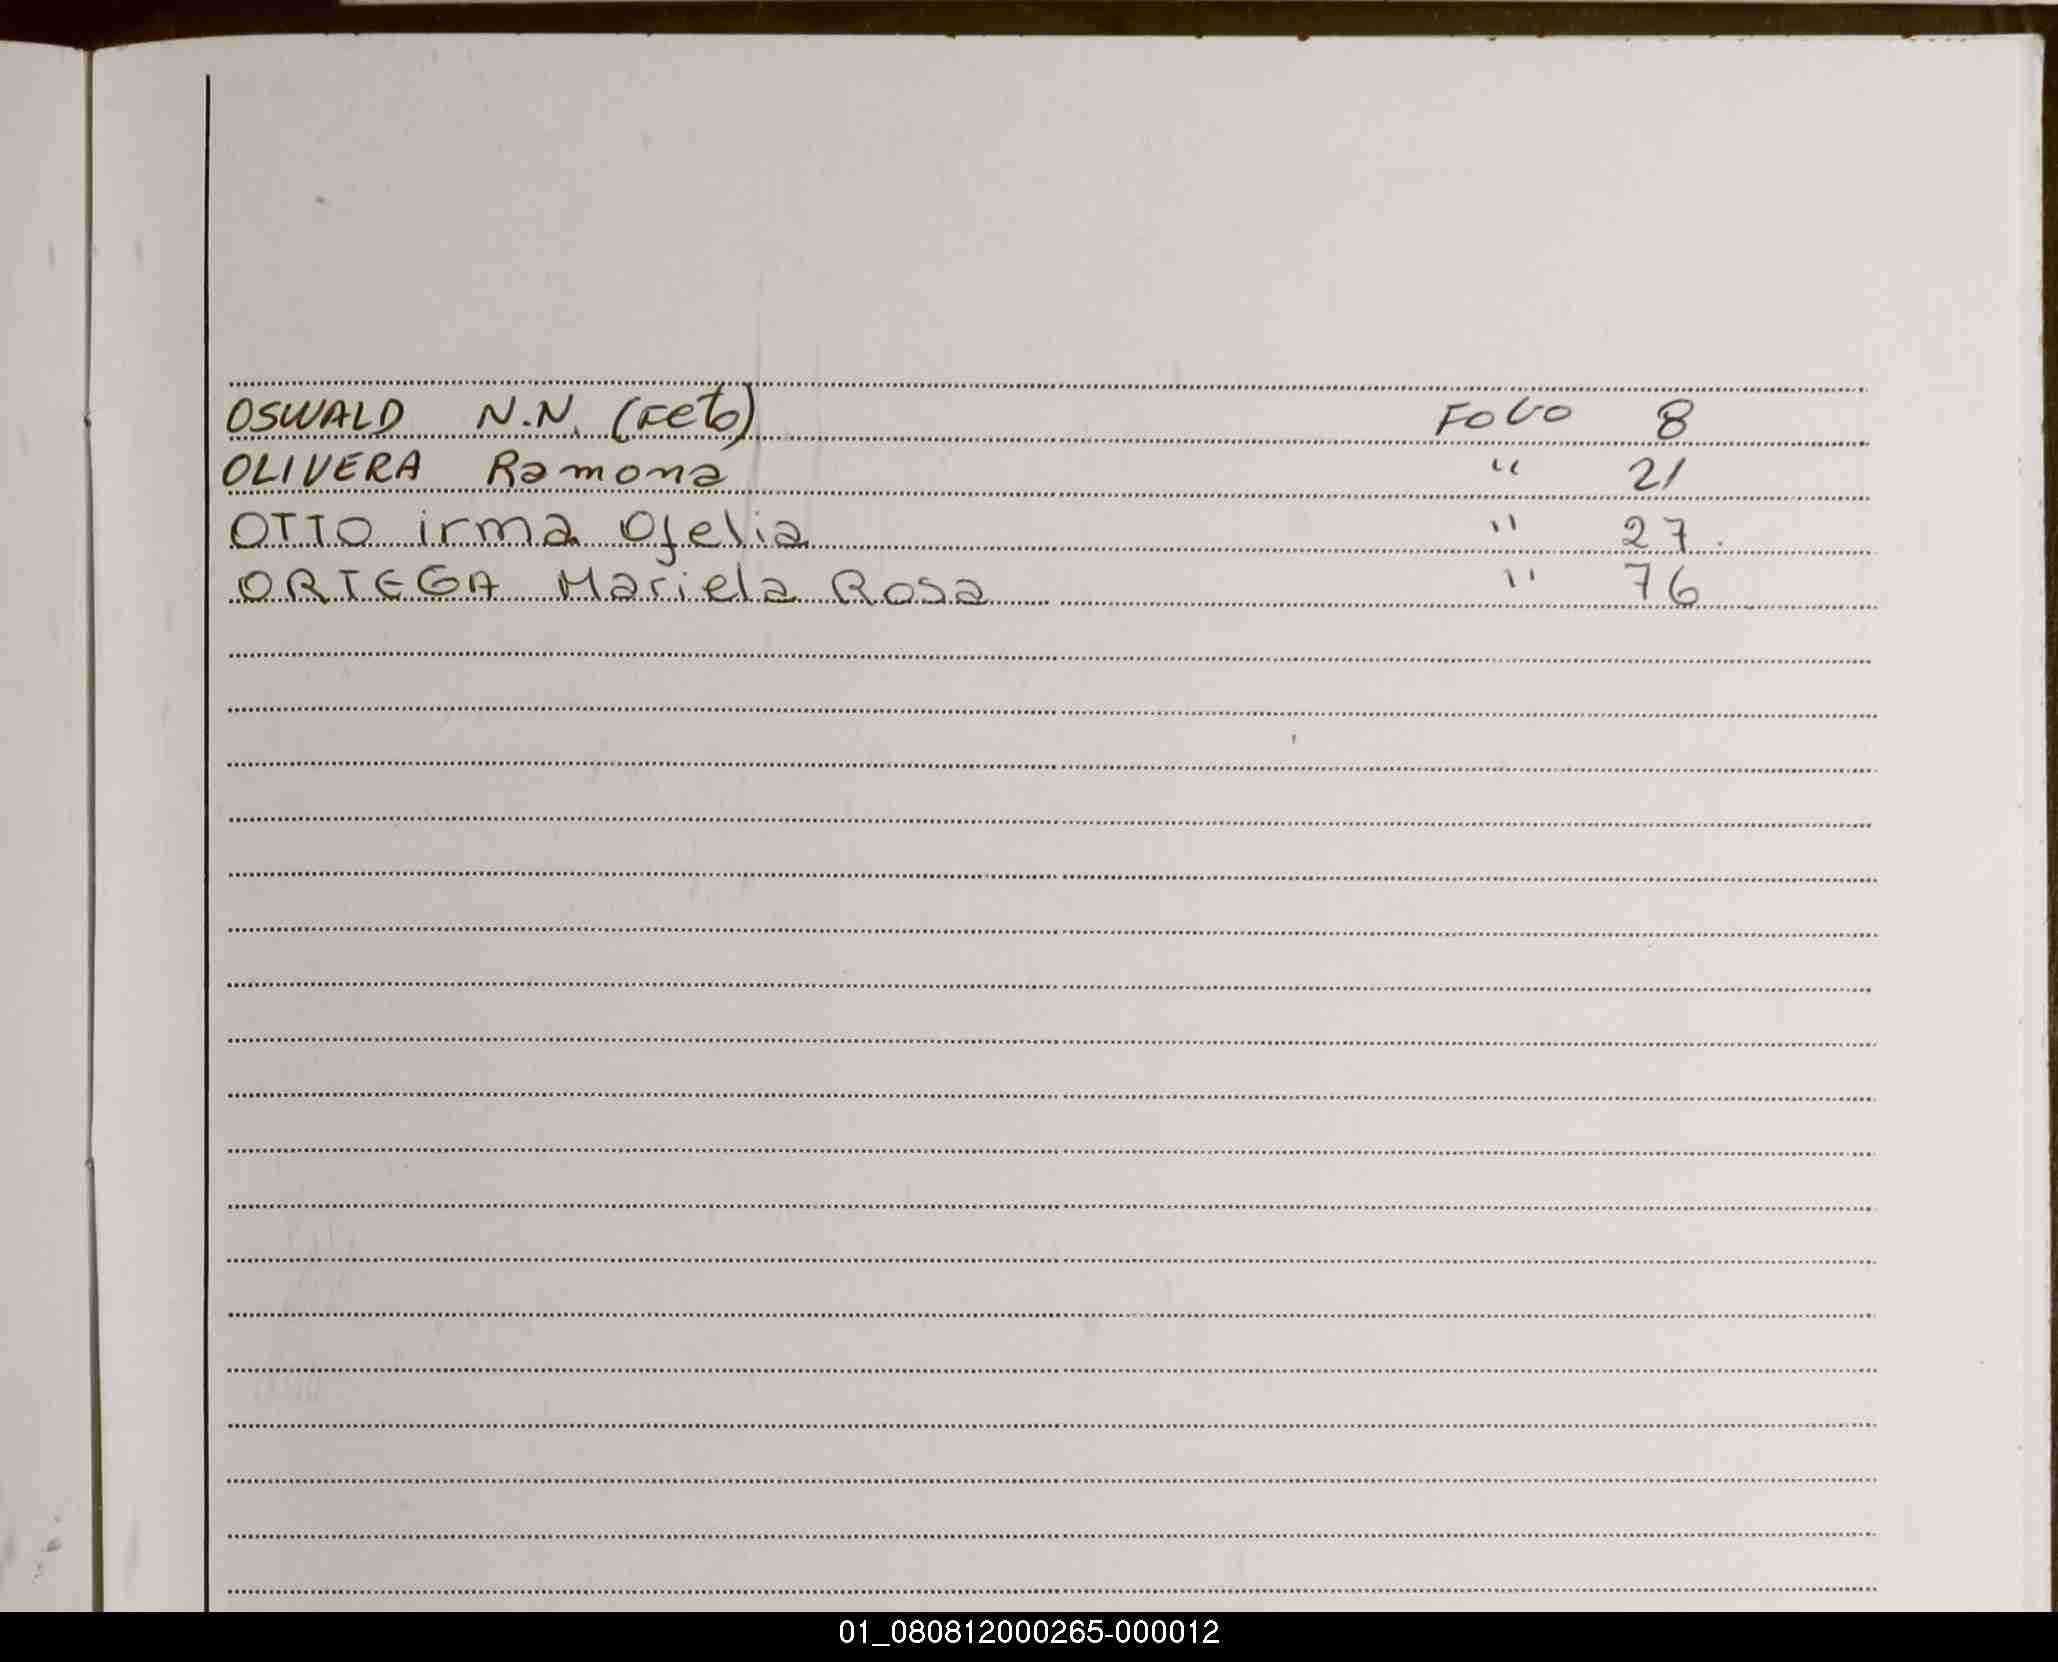 OSWALD N.N. (Feto) FOLIO 8
OLIVERA Ramona " 21
OTTO irma Ofelia " 27.
ORTEGA Mariela Rosa " 76
01_080812000265-000012